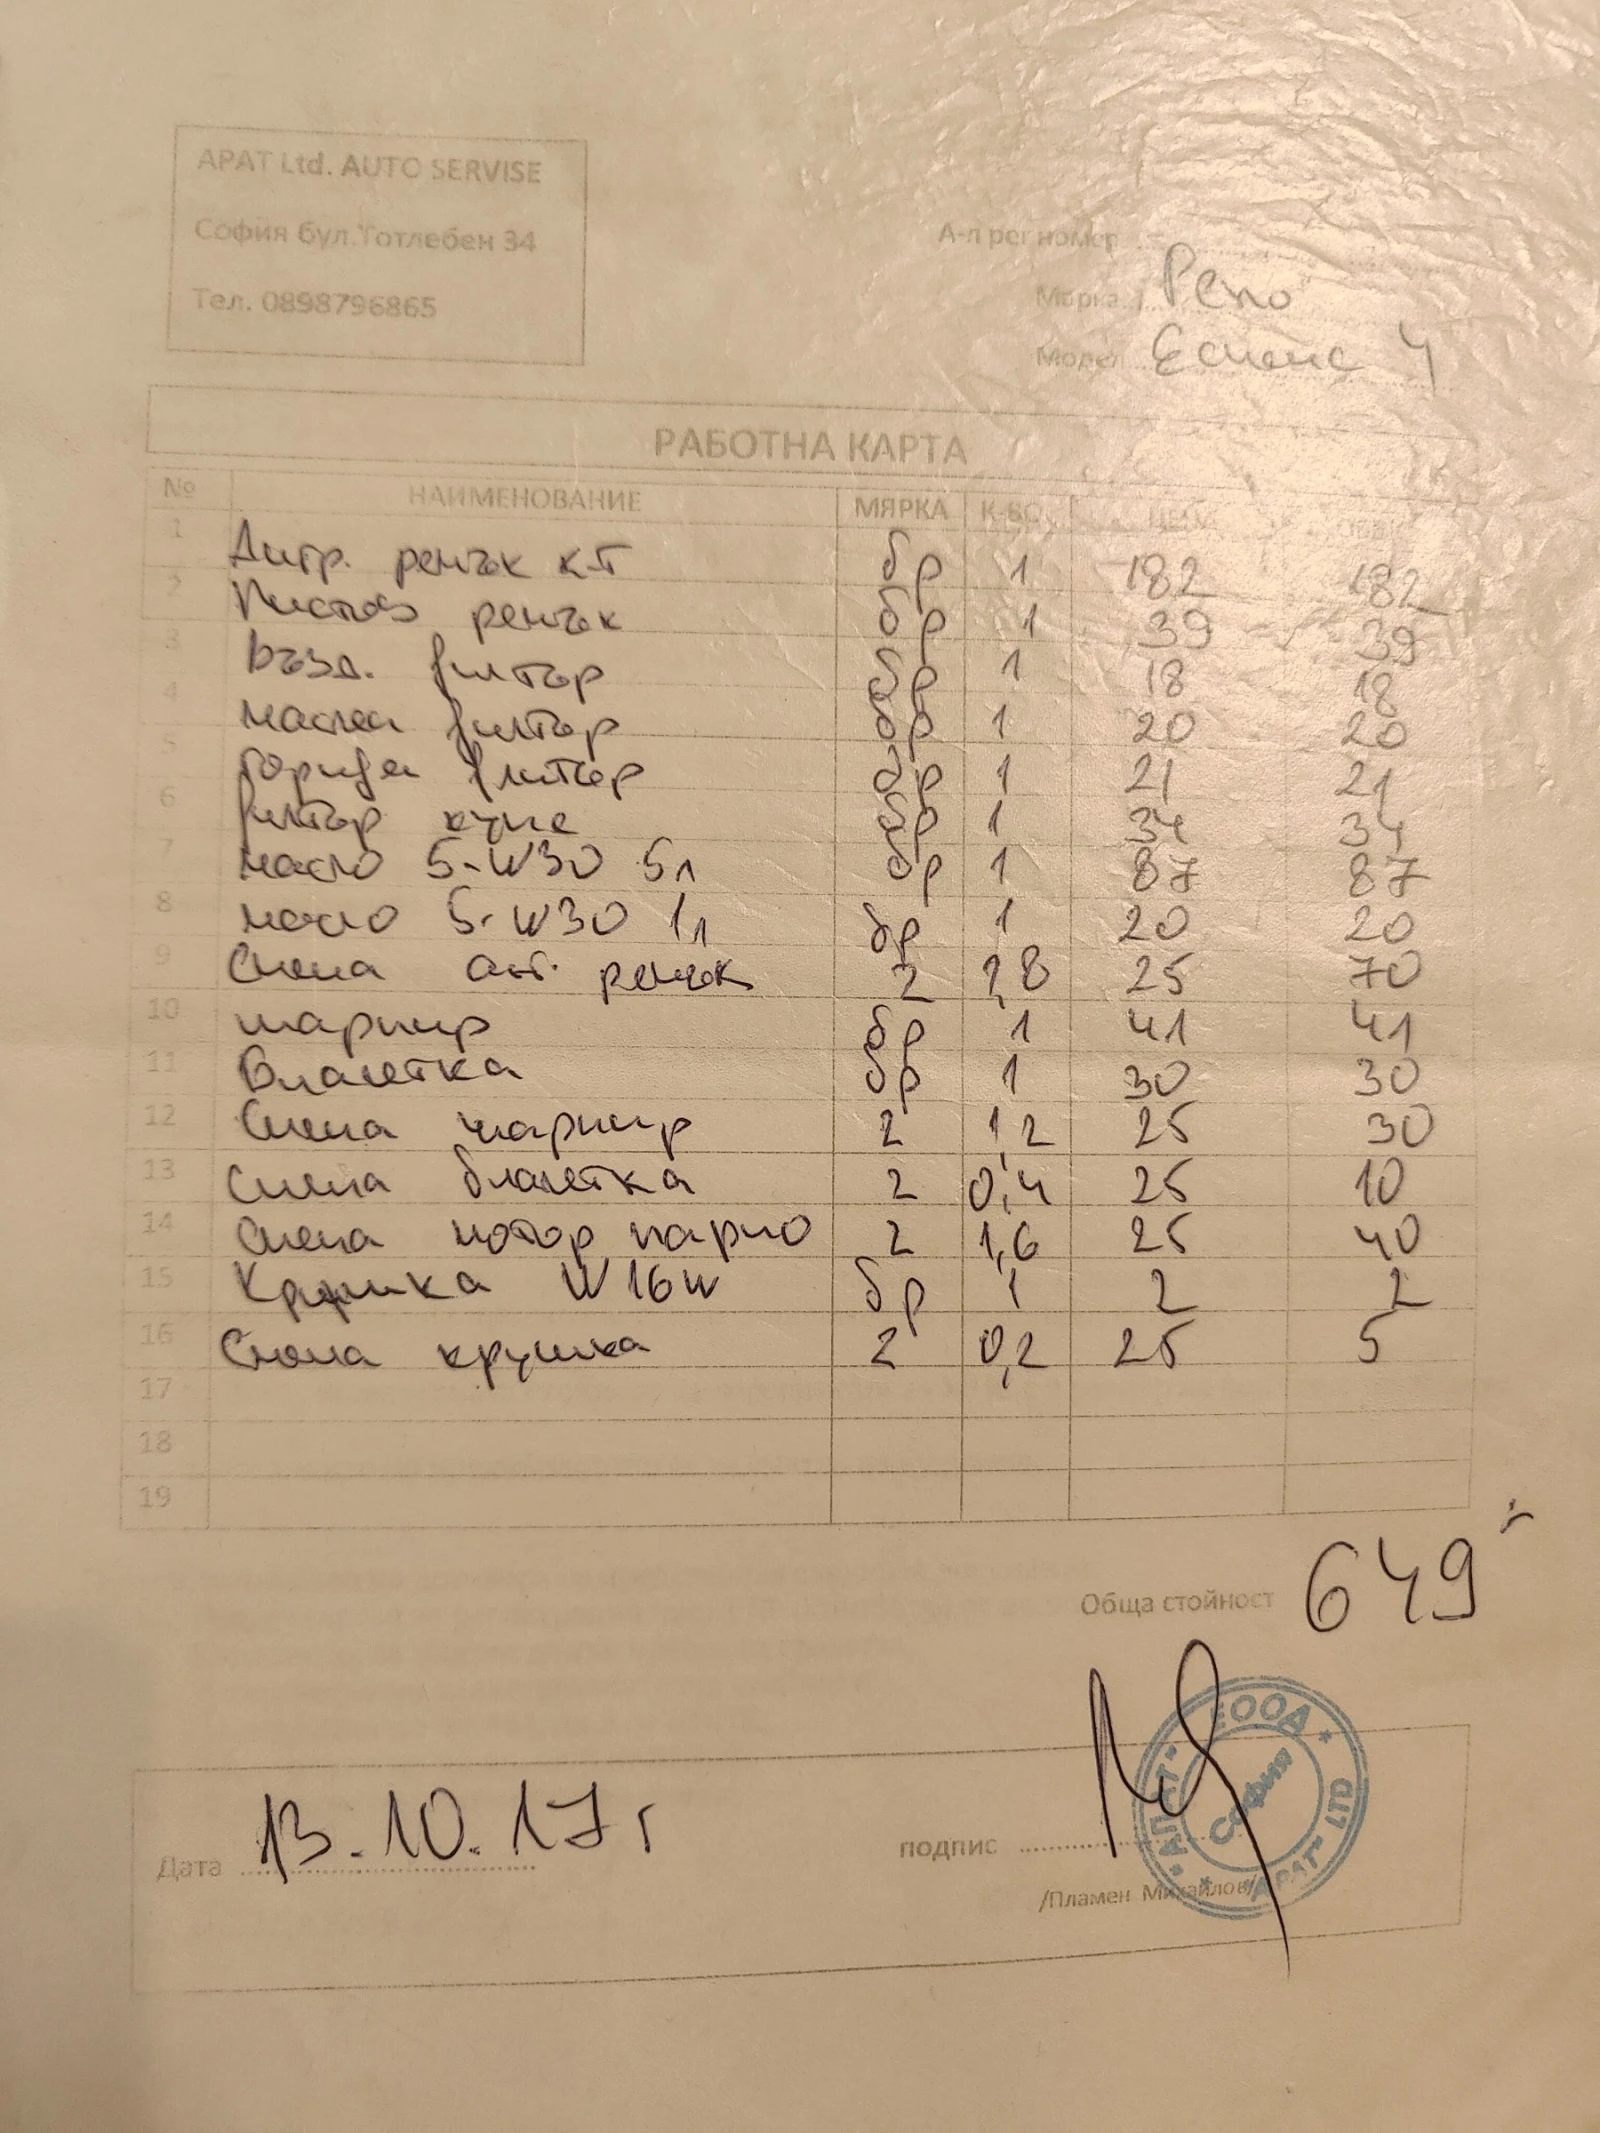 АРАТ Ltd. AUTO SERVISE
София бул.Тотлебен 34
Тел. 0898796865
А-л рег номер
Марка Рено
Модел Еспейс 4
РАБОТНА КАРТА
№ НАИМЕНОВАНИЕ МЯРКА К-ВО ЦЕНА
1 Ангр. ренък к-т бр 1 182 182
2 Пистов ренък бр 1 39 39
3 Възд. филтър бр 1 18 18
4 маслен филтър бр 1 20 20
5 горивен филтър бр 1 21 21
6 филтър купе бр 1 34 34
7 масло 5-W30 5л бр 1 87 87
8 масло 5-W30 1л бр 1 20 20
9 Смяна ренък 2 2,8 25 70
10 шарнир бр 1 41 41
11 Биалетка бр 1 30 30
12 Смяна шарнир 2 1,2 25 30
13 Смяна биалетка 2 0,4 25 10
14 Смяна мотор парно 2 1,6 25 40
15 Крушка W16w бр 1 2 2
16 Смяна крушка 2 0,2 25 5
17
18
19
Обща стойност 649
Дата 13.10.17г
подпис
/Пламен Михайлов/
"АРАТ" ЕООД * "ARAT" LTD *
София